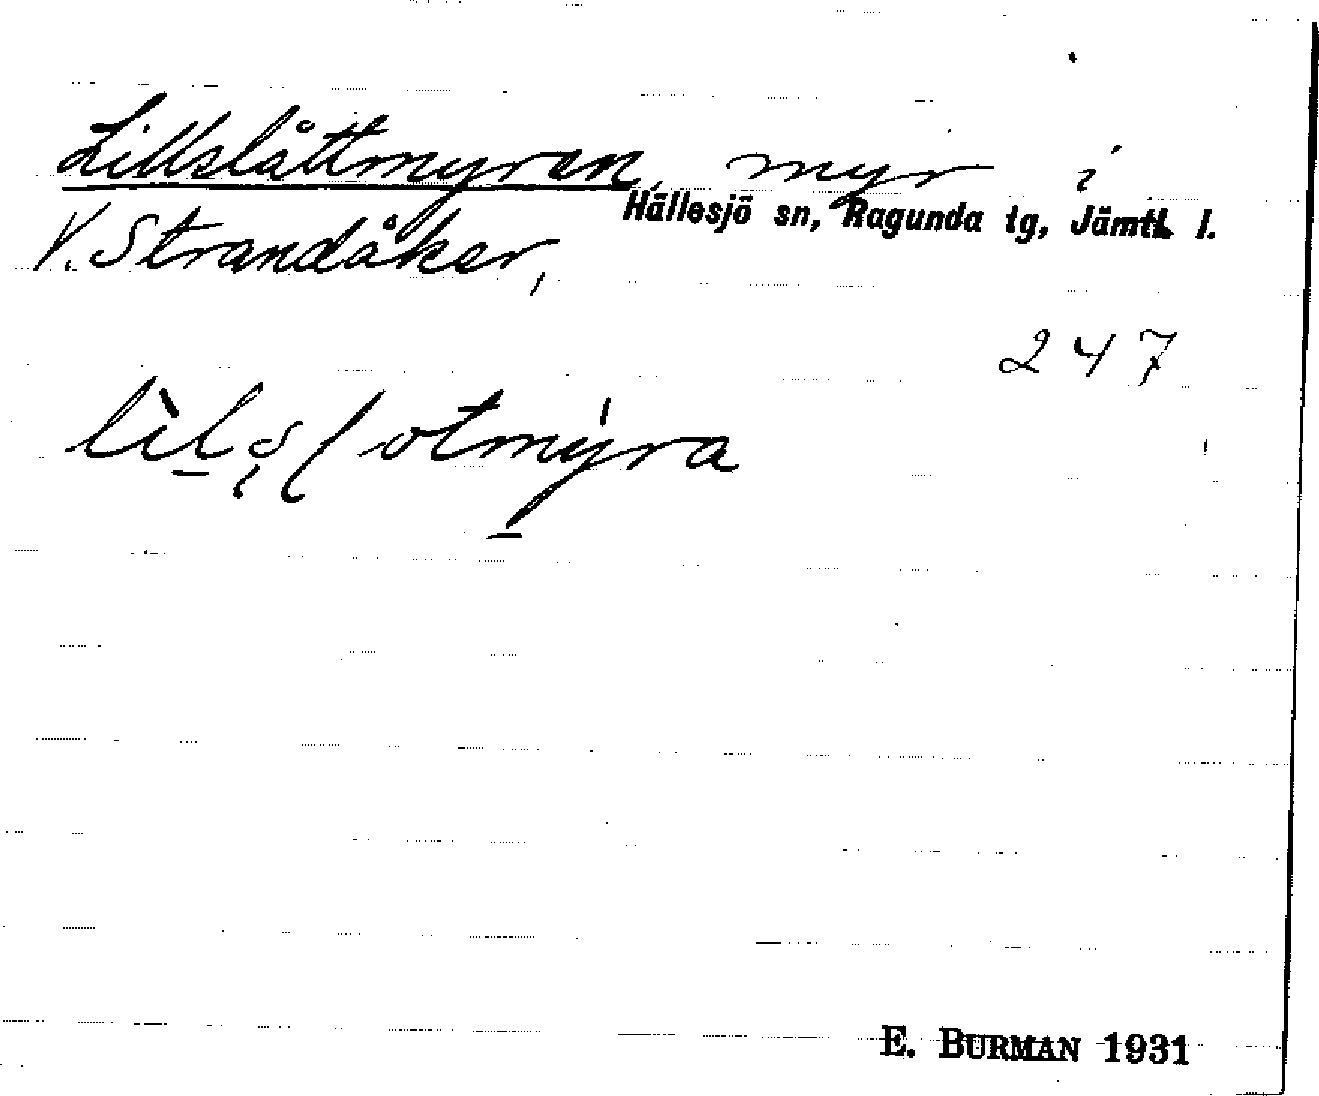 Lillslåttmyran, myr i
Hällesjö sn, Ragunda tg, Jämtl. l.
V. Strandåker,
247
E. BURMAN 1931